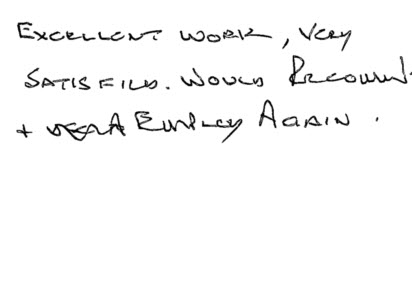 Excellent work, very
satisfied. Would Recommend
+ Employ Again.